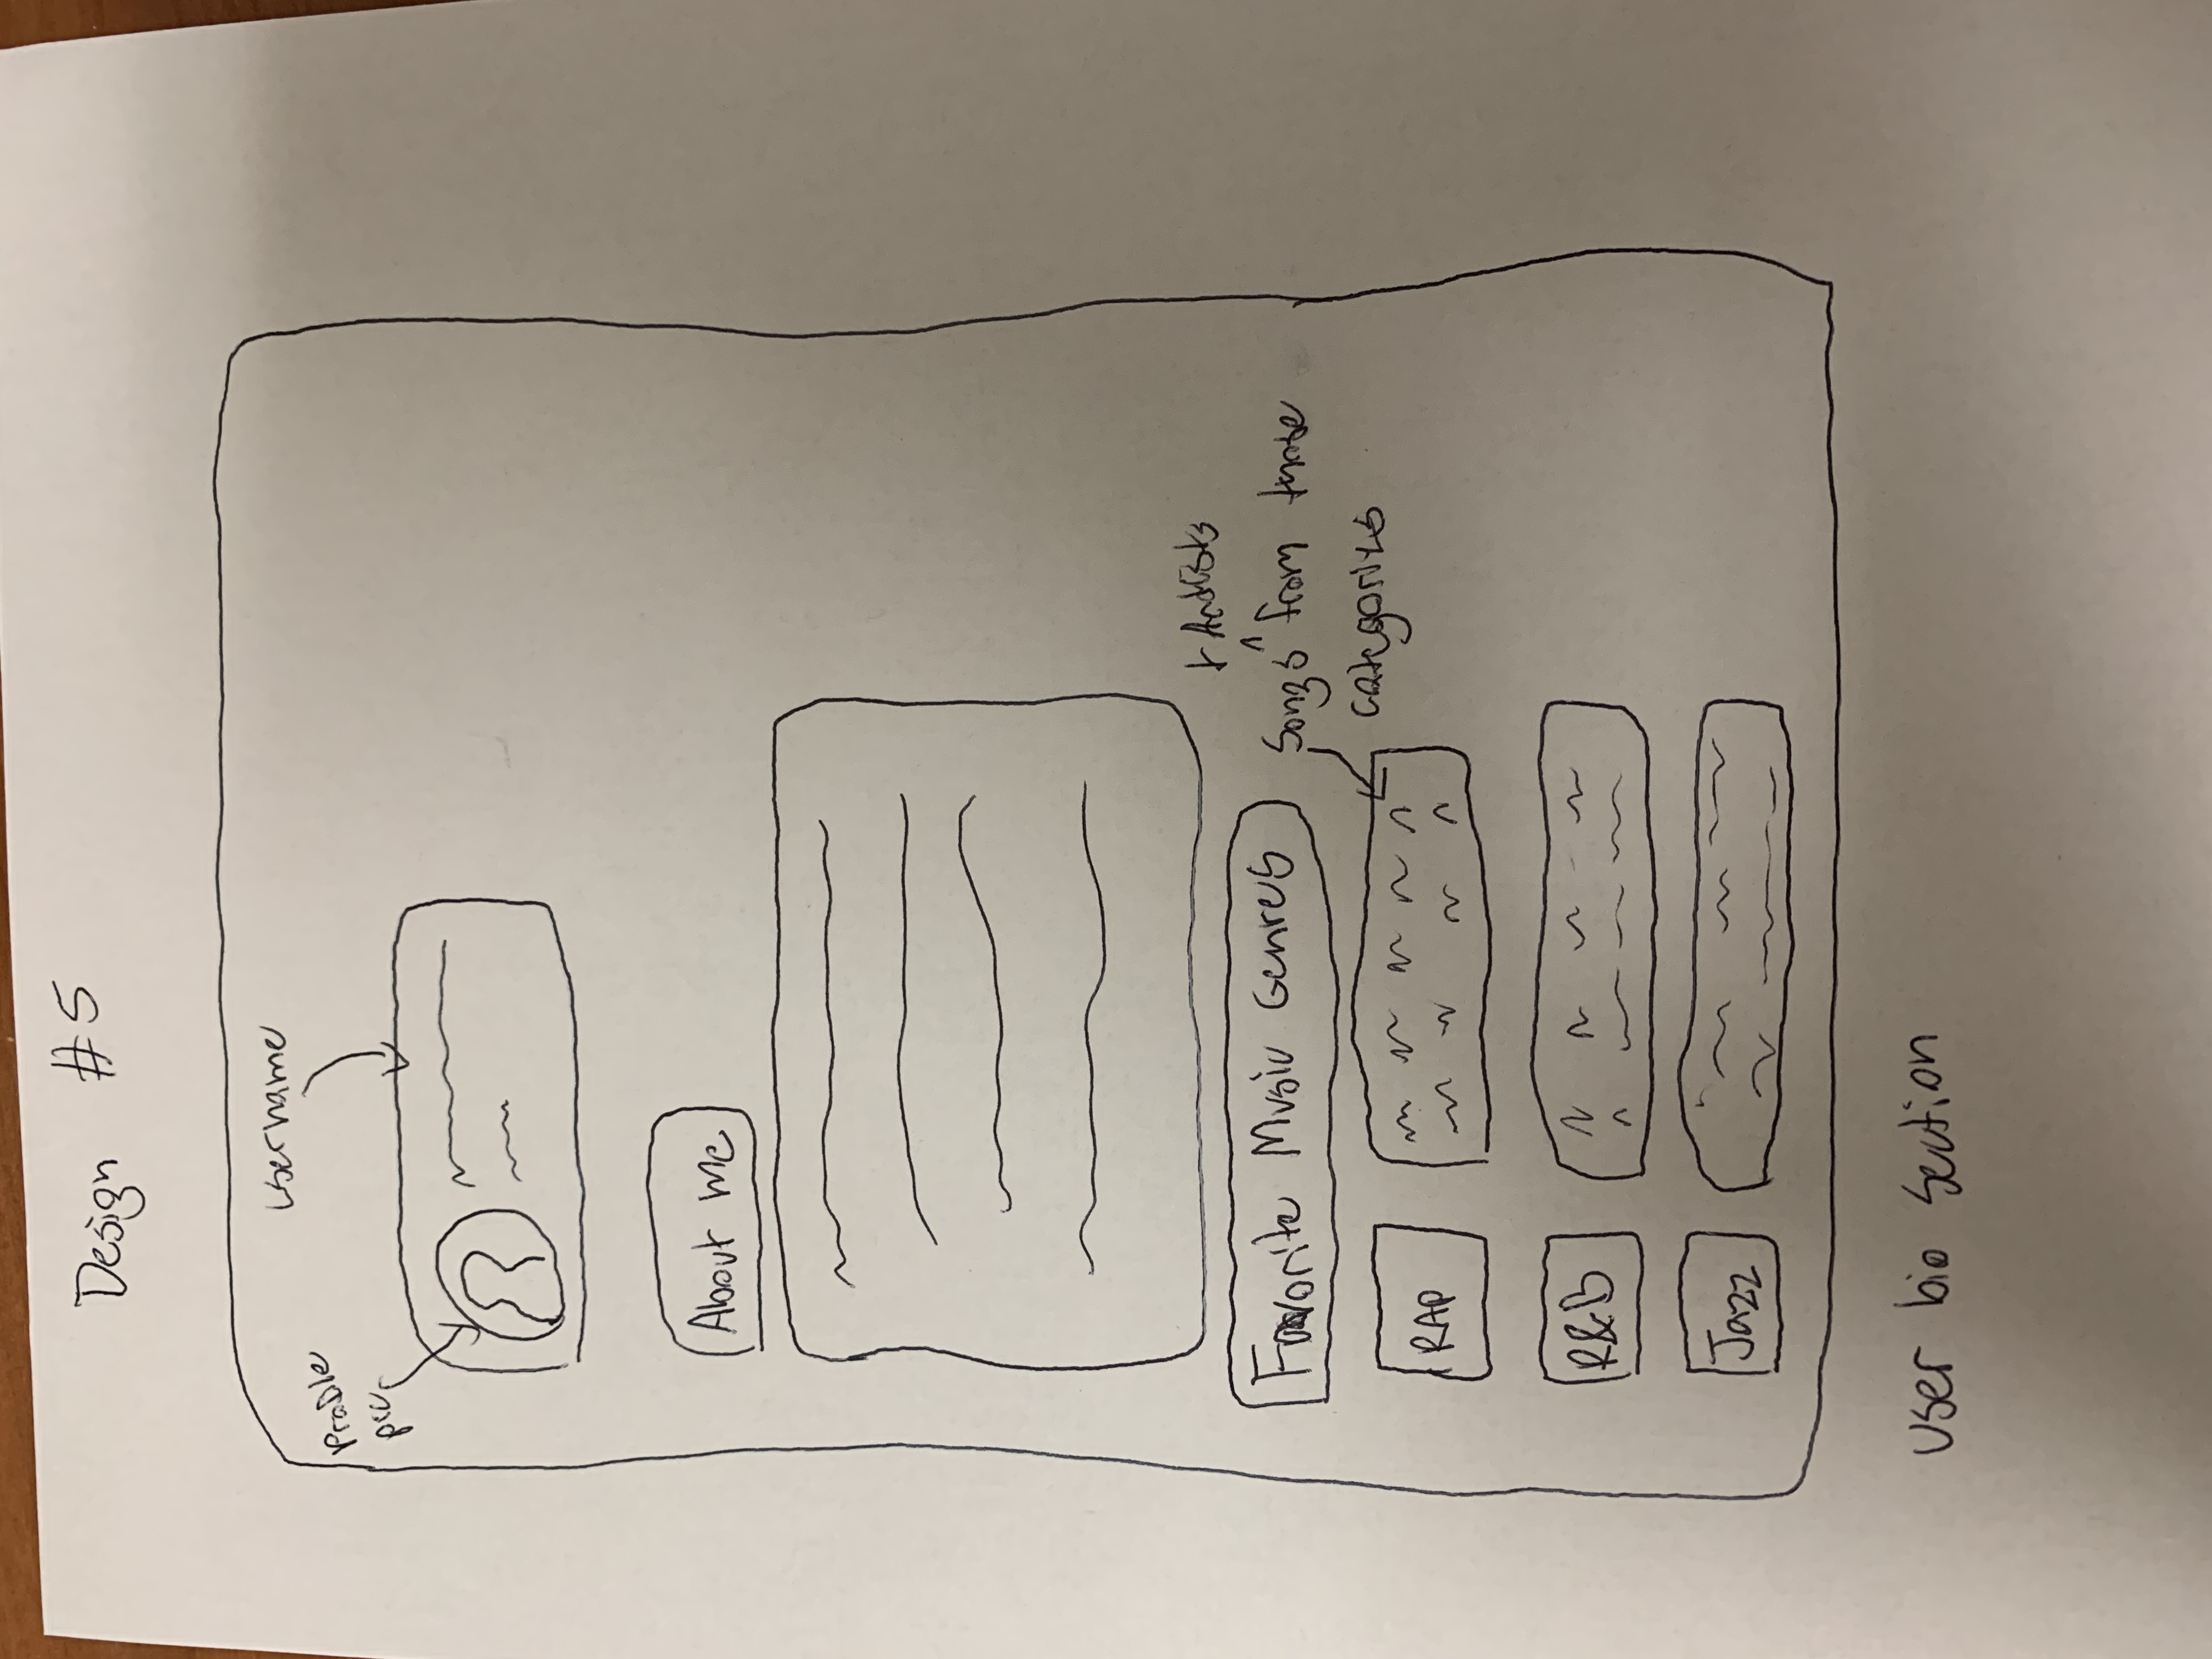 Design #5
username
Profile
pic
About me
Favorite Music Genres
+ Artists
Songs ^ from those
categories
RAP
R&B
Jazz
user bio section